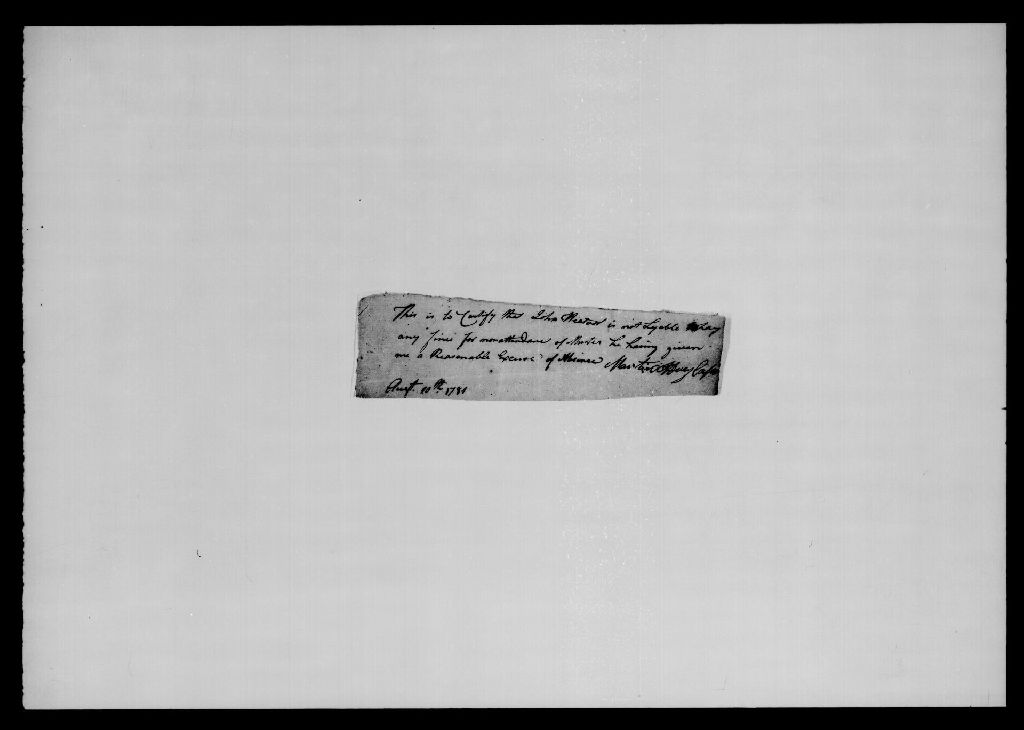 This is to Certify that John Weaver is not Lyable to pay
any fine for nonattendance of he having given
me a Reasonable Excuse of Absence Martin Capt
Augt. 10th 1781